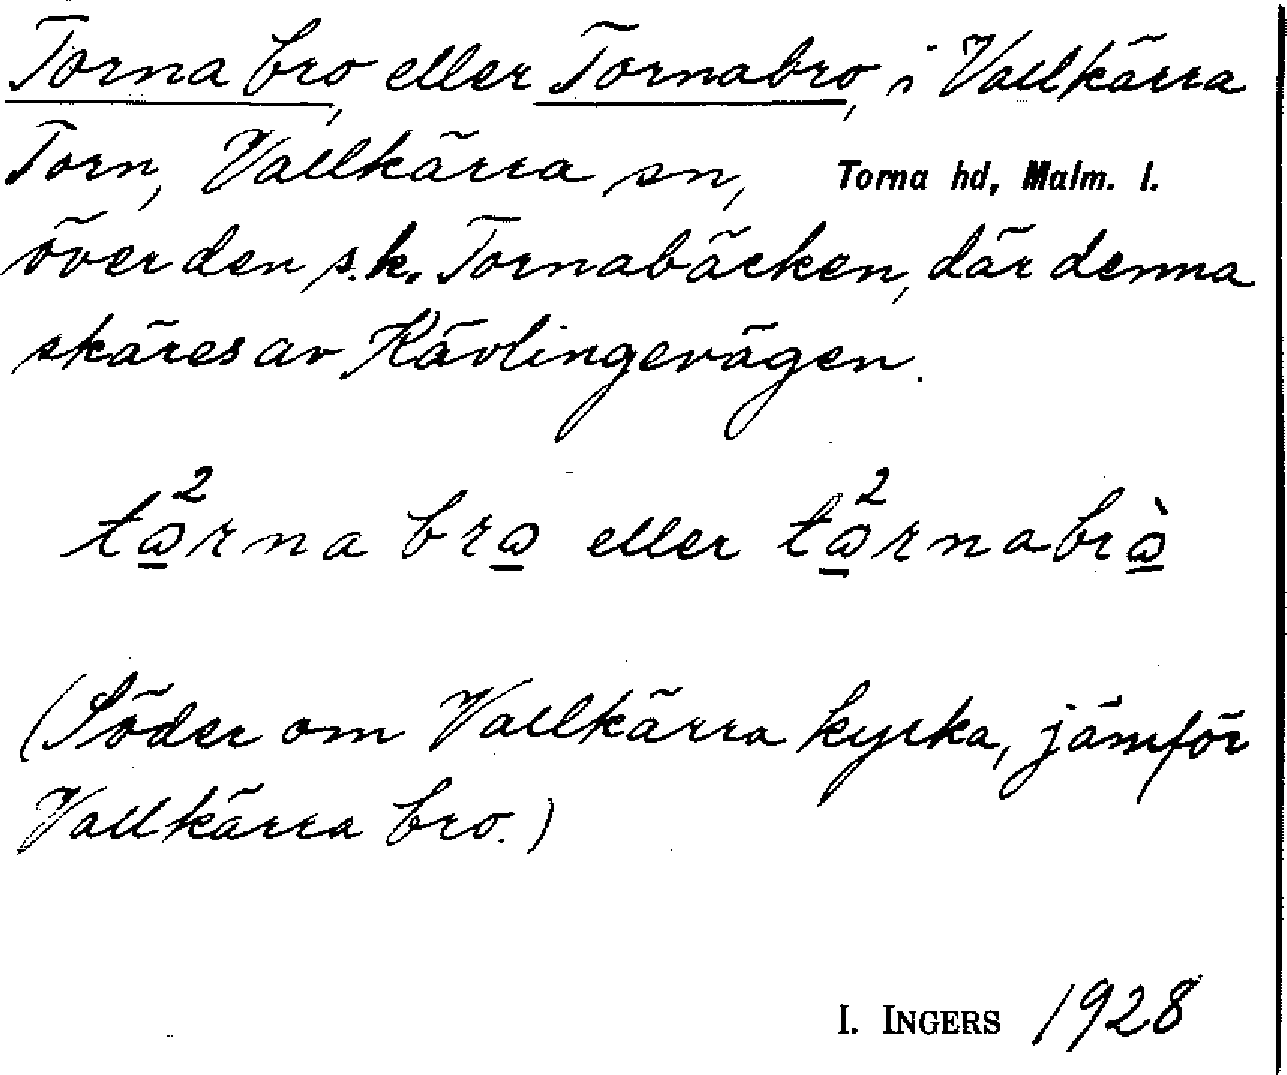 Torna bro, eller Tornabro, i Vallkärra
Torn, Vallkärra sn, Torna hd, Malm. l.
över den s.k. Tornabäcken, där denna
skäres av Kävlingevägen.
tⱺ̲²rna brⱺ̲ eller tⱺ̲²rnabrⱺ̲̀
(Söder om Vallkärra kyrka, jämför
Vallkärra bro.)
I. INGERS 1928